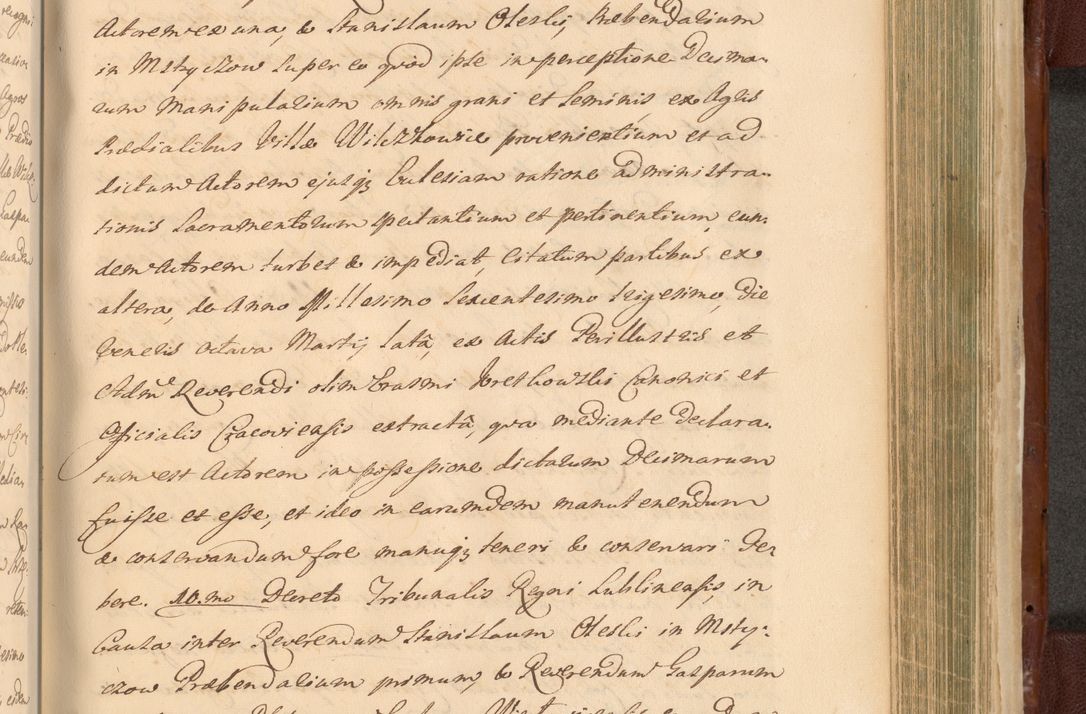 Actorem ex una, & Stanislaum Oleski, Præbendarium
in Mstyczow super eo quòd ipse in perceptione Decima-
rum Manipularium omnis grani et seminis, ex Agris
Prædialibus Villæ Wilczkowice provenientium et ad
dictum Actorem ejusq; Eclesiam ratione administra-
tionis Sacramentorum spectantium et pertinentium, eun-
dem Actorem turbet & impediat, Citatum partibus ex
altera, de Anno Millesimo Sexcentesimo Trigesimo, Die
Veneris octava Martij latâ, ex Actis Perillustris et
Adm Reverendi olim Erasmi Kretkowski Canonici et
Officialis Cracoviensis extractâ, qva mediante declara-
tum est Actorem in possessione dictarum Decimarum
fuisse et esse, et ideo in earumdem manutenendum
& conservandum fore manuq; teneri & conservari de-
bere. 10.mo Decreto Tribunalis Regni Lublinensis, in
Causa inter Reverendum Stanislaum Oleski in Msty-
czow Præbendarium primum, & Reverendum Gasparum